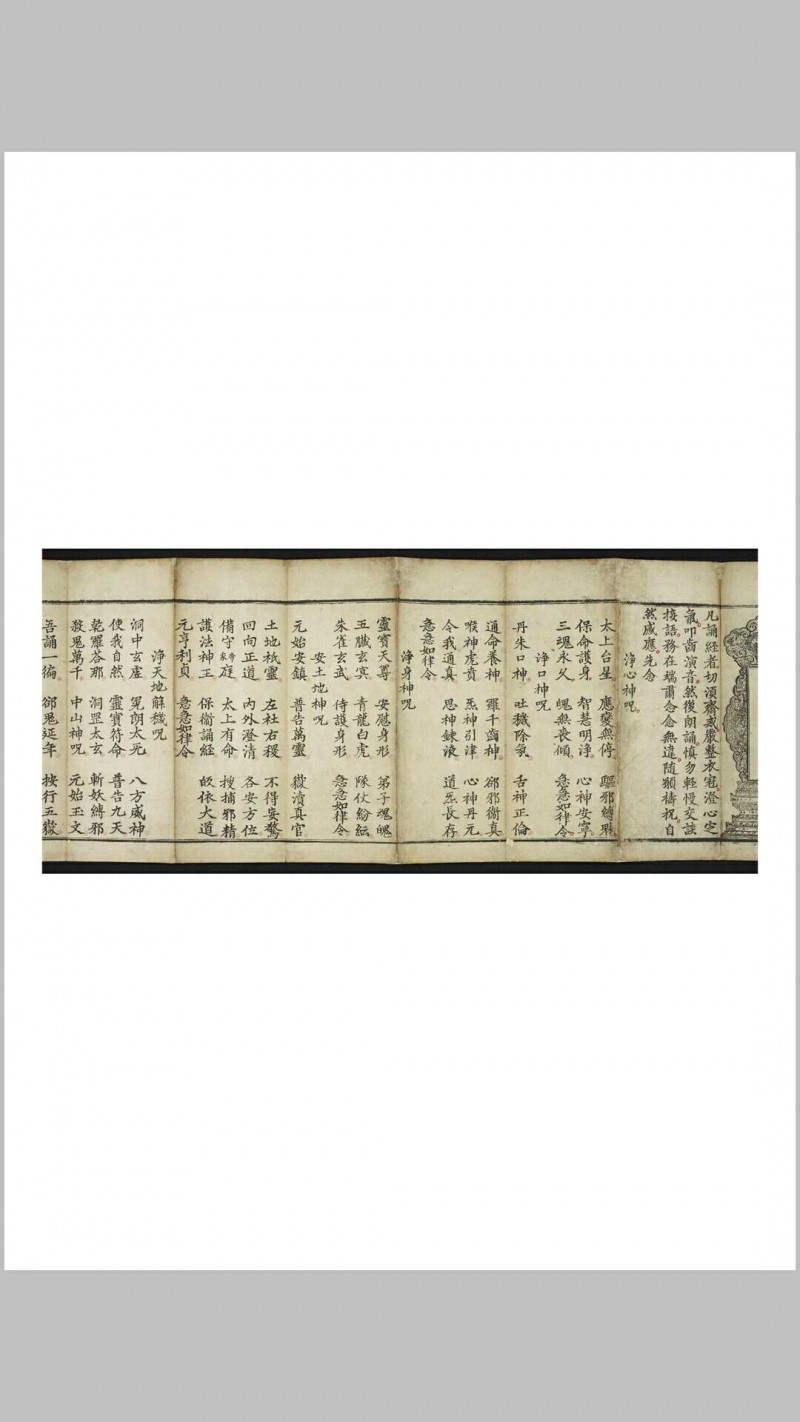 凡誦經者切須齋戒嚴整衣冠澄心定
氣叩齒演音然後朗誦慎勿輕慢交談
接語務在端肅念念無違隨願禱祝自
然感應先念
淨心神呪
太上台星 應變無停 驅邪縛魅
保命護身 智慧明淨 心神安寧
三魂永久 魄無喪傾 急急如律令
淨口神呪
丹朱口神 吐穢除氛 舌神正倫
通命養神 羅千齒神 郤邪衛真
喉神虎賁 炁神引津 心神丹元
令我通真 思神鍊液 道炁長存
急急如律令
淨身神呪
靈寶天尊 安慰身形 弟子魂魄
五臟玄冥 青龍白虎 隊仗紛紜
朱雀玄武 侍護身形 急急如律令
安土地神呪
元始安鎮 普告萬靈 嶽瀆真官
土地祇靈 左社右稷 不得妄驚
回向正道 內外澄清 各安方位
備守庭 太上有命 搜捕邪精
護法神王 保衞誦經 皈依大道
元亨利貞 急急如律令
淨天地解穢呪
洞中玄虛 晃朗太元 八方威神
使我自然 靈寶符命 普告九天
乾羅荅那 洞罡太玄 斬妖縛邪
殺鬼萬千 中山神呪 元始玉文
吾誦一徧 郤鬼延年 按行五嶽